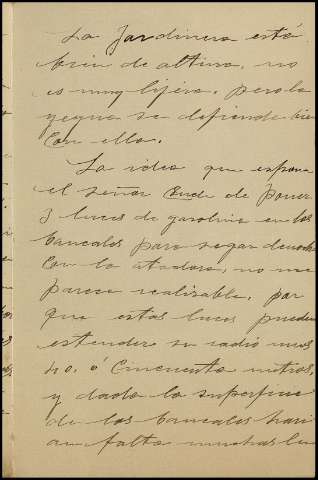 La Jardinera está
bien de altura, no
es muy lijera, pero la
yegua se defiende bien
con ella.
La idea que expone
el señor Conde de poner
3 luces de gasolina en los
bancales para segar de noche
con la atadora, no me
parece realisable, por
que estas luces pueden
estender su radio unos
40, ó cincuenta metros,
y dada la superficie
de los bancales hari
an falta muchas lu